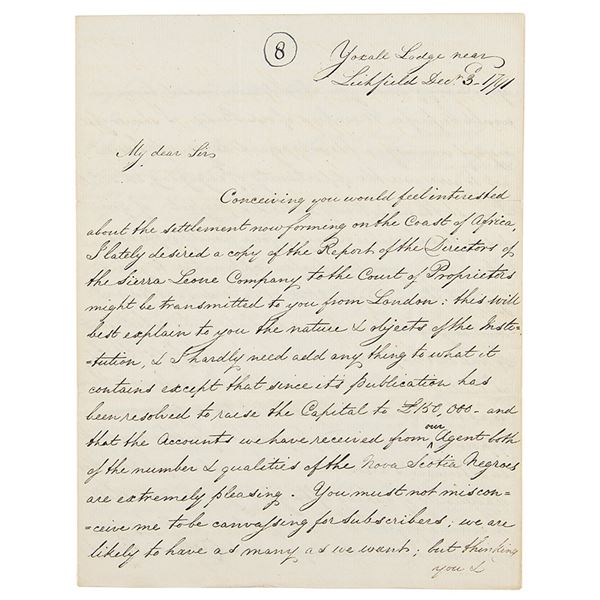 8
Yoxall Lodge near
Lichfield Decr. 3d - 1791
My dear Sir,
Conceiving you would feel interested
about the settlement now forming on the Coast of Africa,
I lately desired a copy of the Report of the Directors of
the Sierra Leone Company to the Court of Proprietors
might be transmitted to you from London: this will
best explain to you the nature & objects of the Insti=
=tution, & I hardly need add any thing to what it
contains except that since its Publication has
been resolved to raise the Capital to £150,000 - and
that the Accounts we have received from our Agent both
of the number & qualities of the Nova Scotia Negroes
are extremely pleasing. You must not miscon=
=ceive me to be canvassing for subscribers; we are
likely to have as many as we want; but thinking
you &